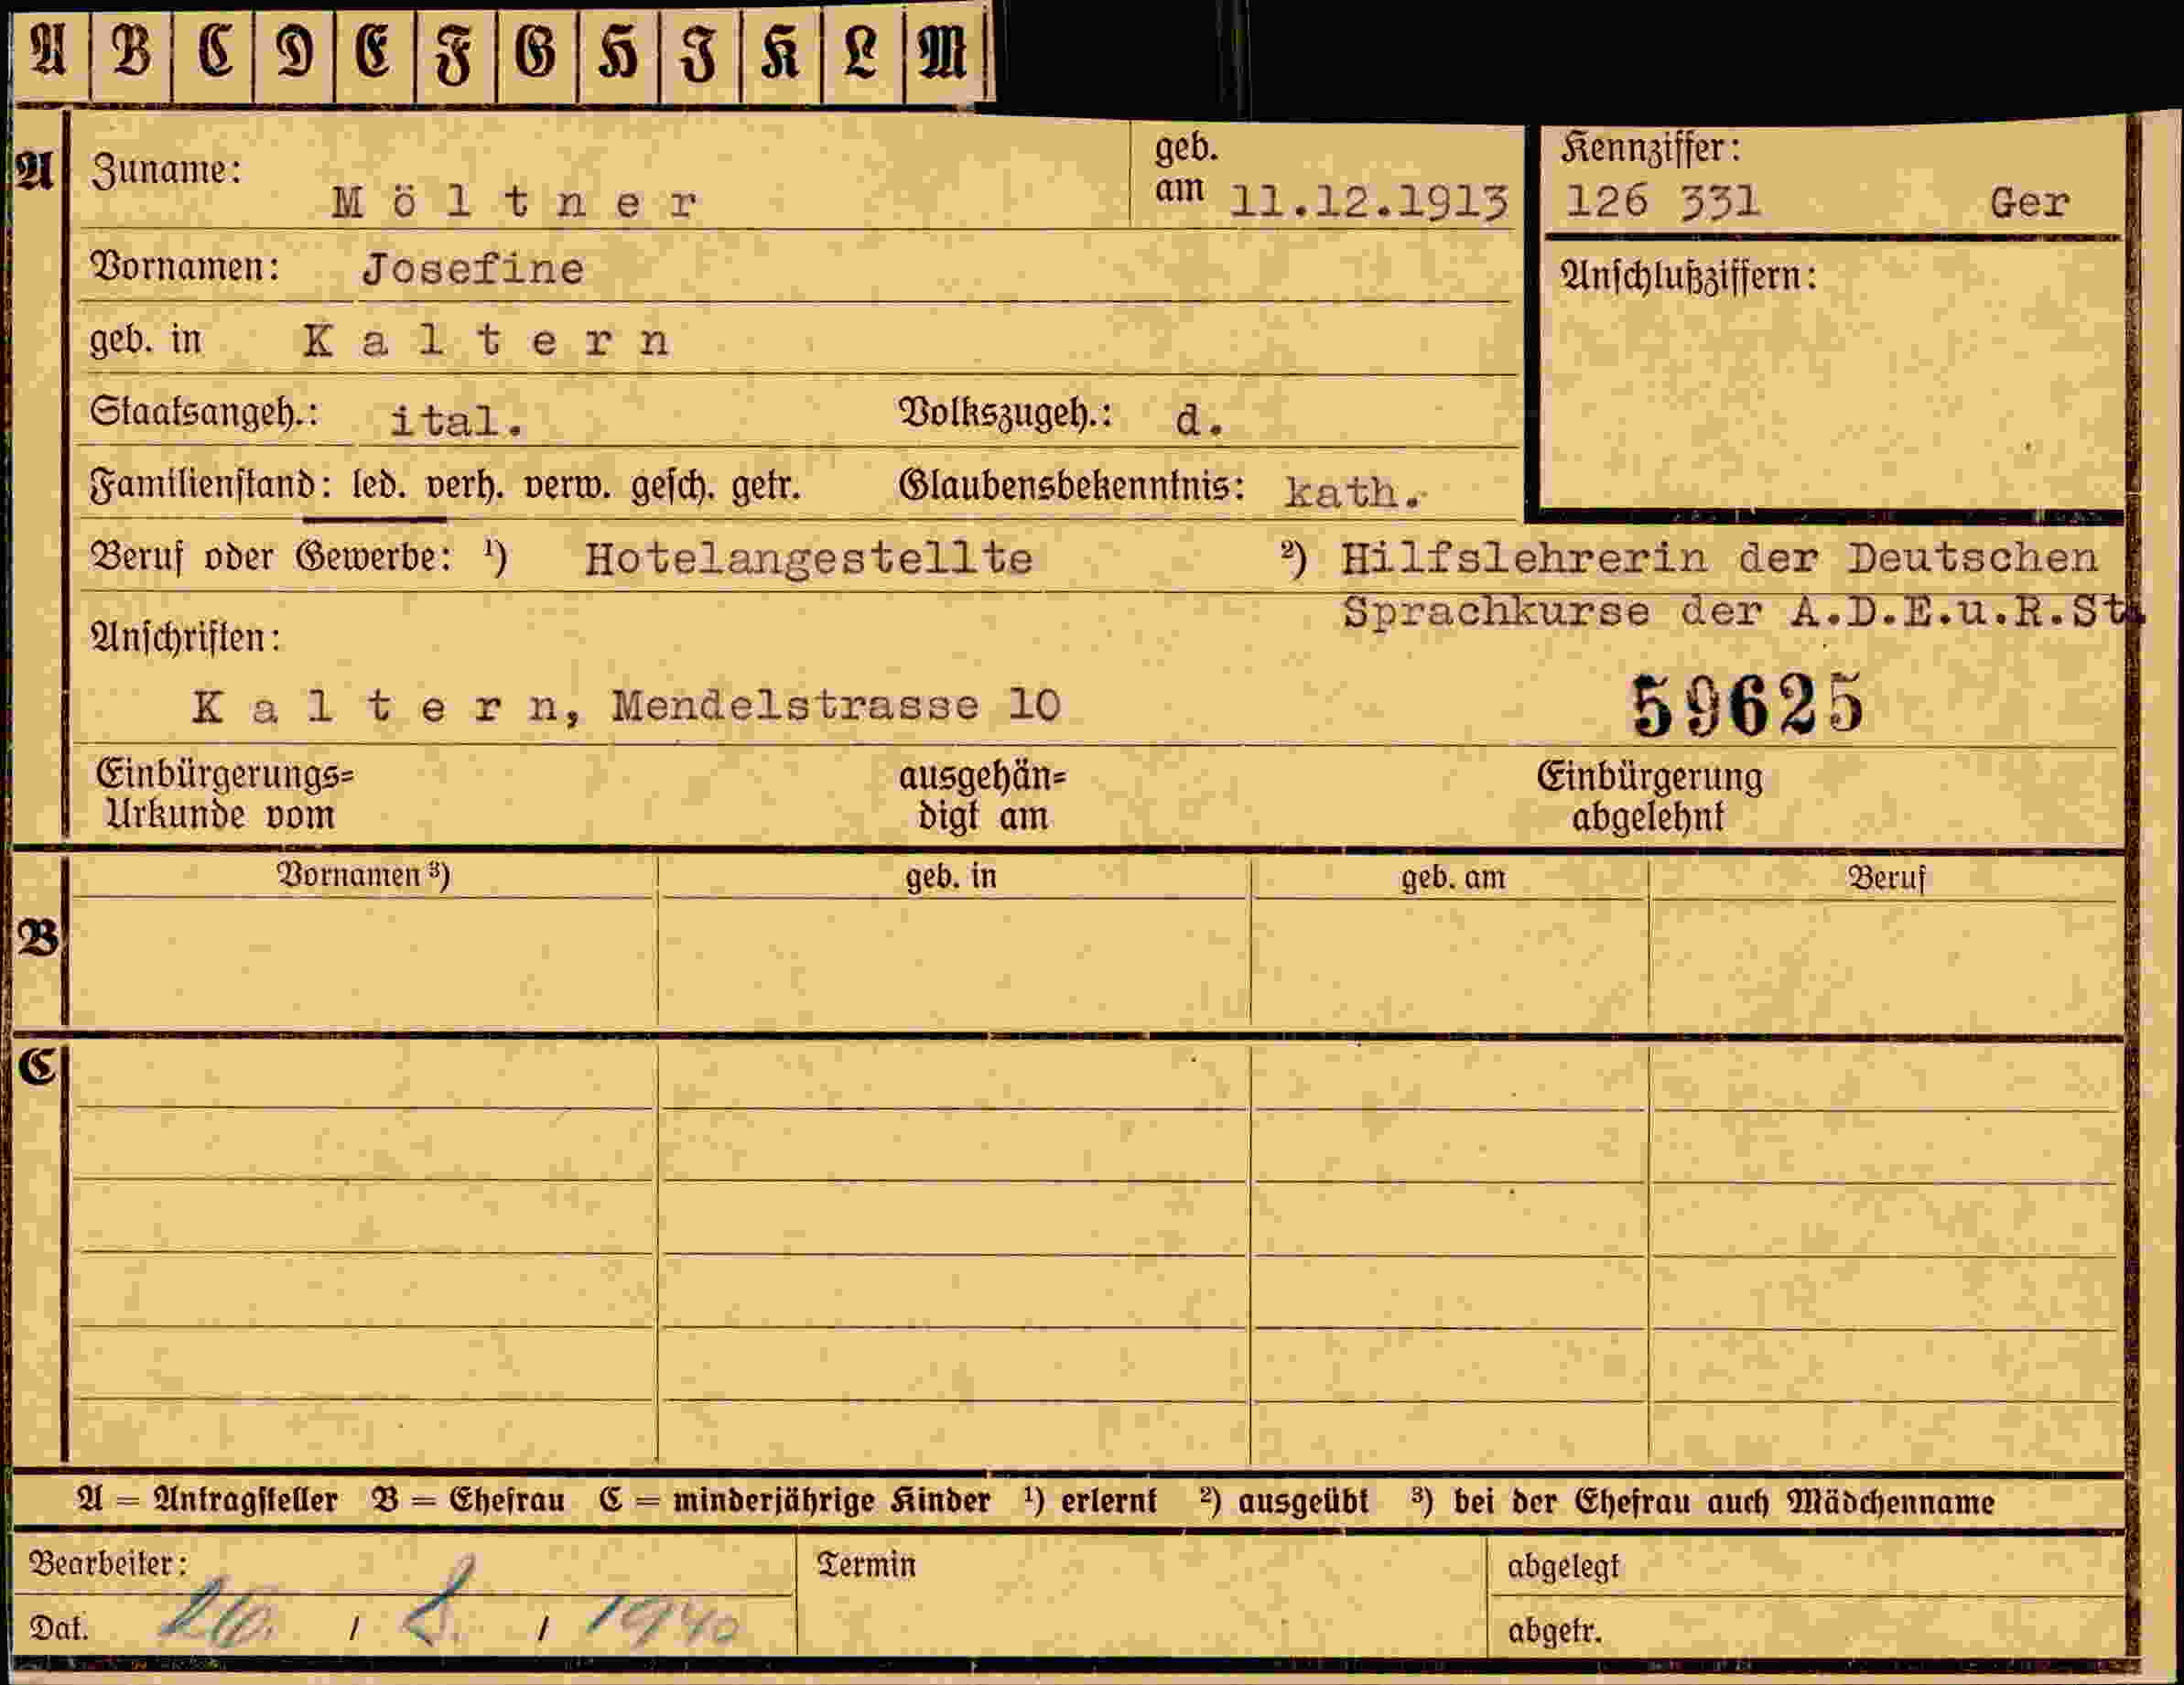 A B C D E F G H I K L M
A Zuname: Möltner geb. am 11.12.1913 Kennziffer: 126 331 Ger
Vornamen: Josefine Anschlußziffern:
geb. in Kaltern
Staatsangeh.: ital. Volkszugeh.: d.
Familienstand: led. verh. verw. gesch. getr. Glaubensbekenntnis: kath.
Beruf oder Gewerbe: ¹) Hotelangestellte ²) Hilfslehrerin der Deutschen
Sprachkurse der A.D.E.u.R.St.
Anschriften:
Kaltern, Mendelstrasse 10 59625
Einbürgerungs= ausgehän= Einbürgerung
Urkunde vom digt am abgelehnt
Vornamen ³) geb. in geb. am Beruf
B
C
A = Antragsteller B = Ehefrau C = minderjährige Kinder ¹) erlernt ²) ausgeübt ³) bei der Ehefrau auch Mädchenname
Bearbeiter: Termin abgelegt
Dat. 26. / / 1940 abgetr.